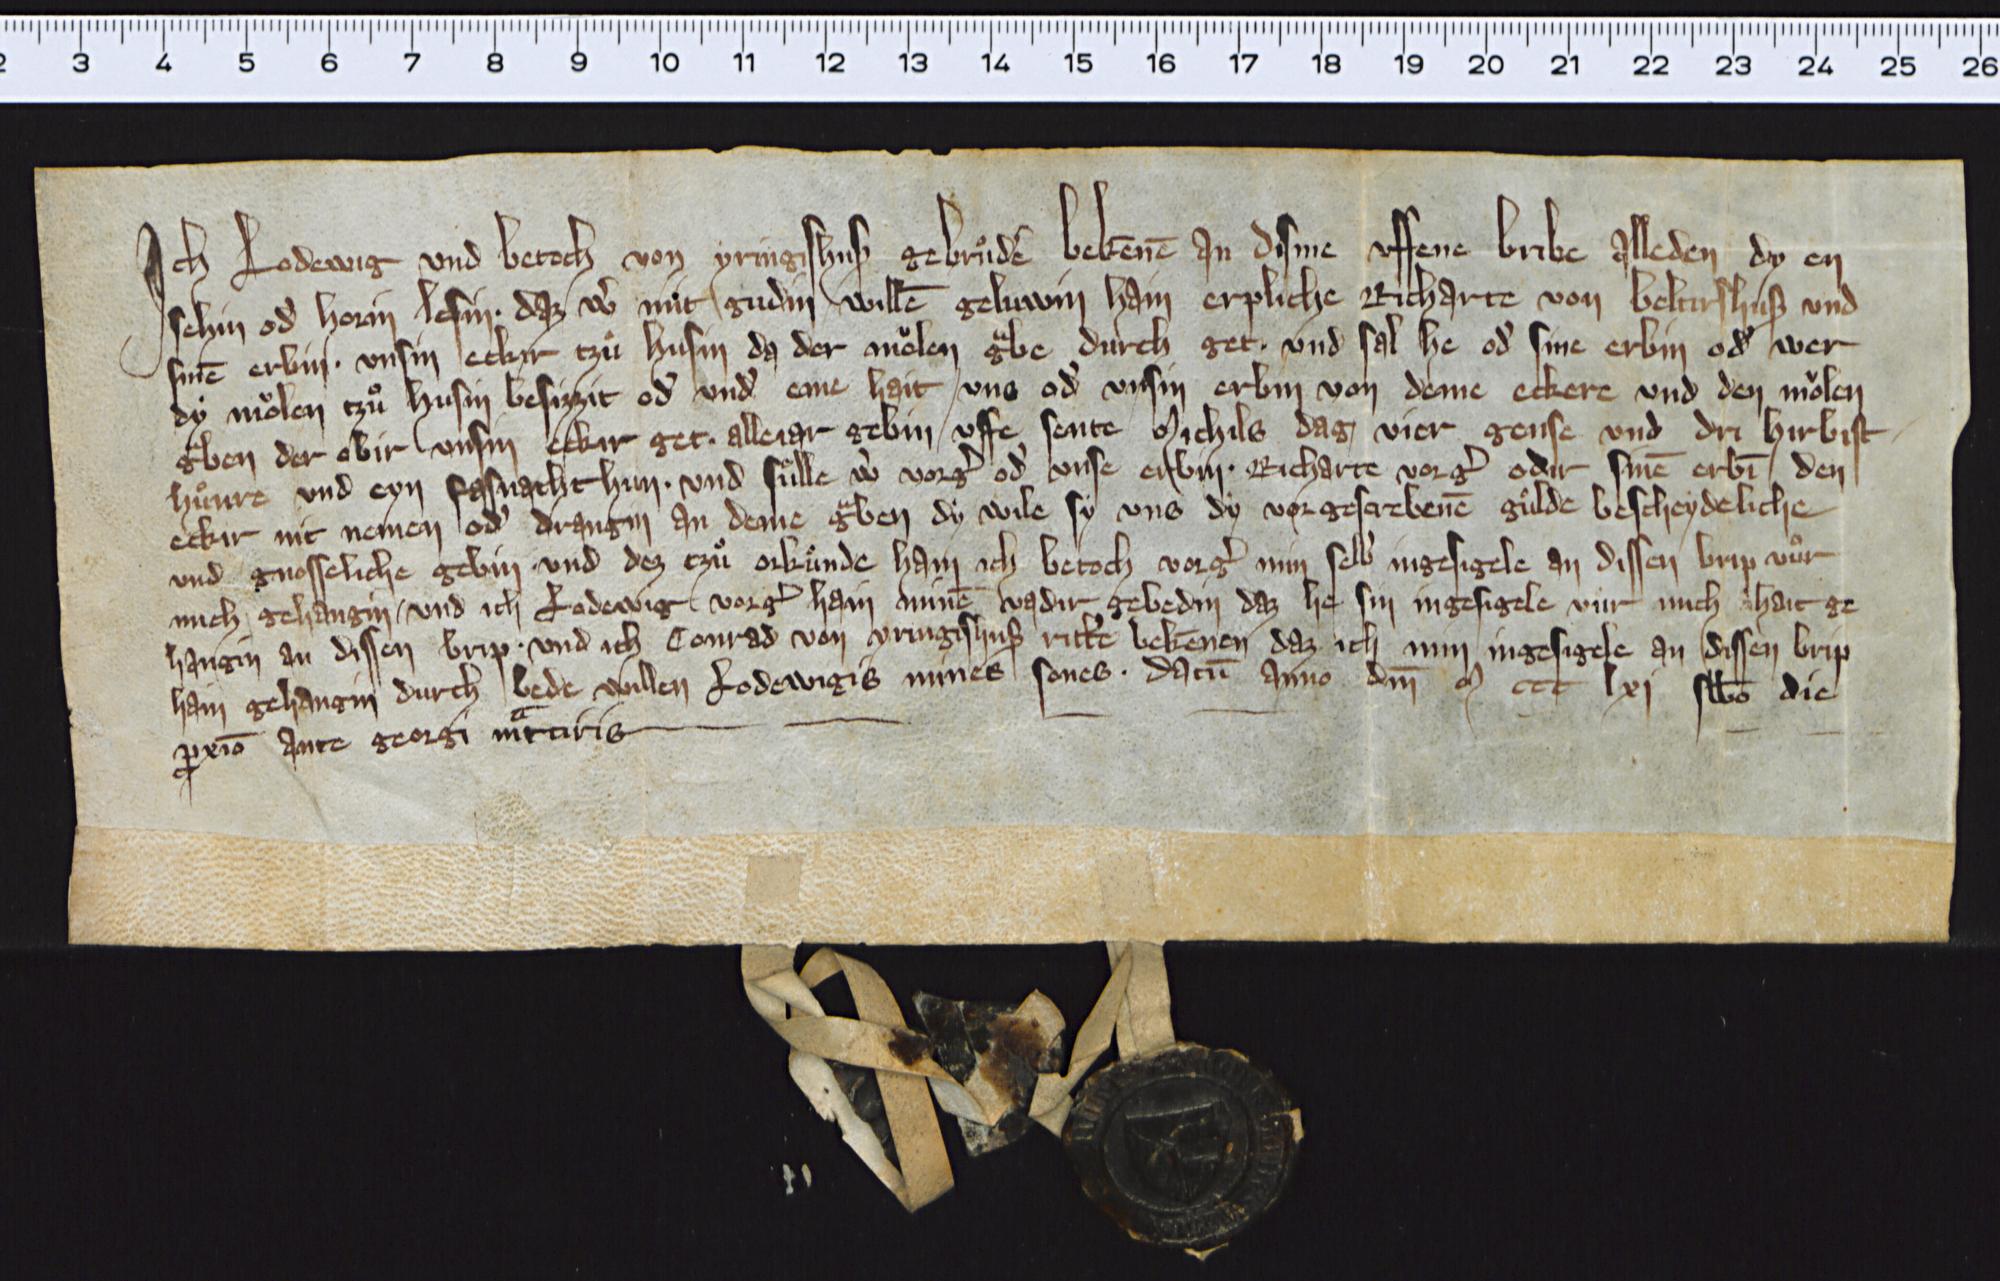 2 3 4 5 6 7 8 9 10 11 12 13 14 15 16 17 18 19 20 21 22 23 24 25 26
Ich Lodewig vnd betoch von yringishuß gebruͦdẽ bekēnē an disme vffene bribe alleden dy en
sehin od̕ horin lesin. daz w̕ mit gudin willē geluwin hain erpliche Richarte von bektirshuß vnd
sinē erbin. vnsin eckir tzuͦ husin da der moͤlen gͣbe durch get. vnd sal he od̕ sine erbin od̕ wer
dy moͤlen tzuͦ husin besizzit od̕ vnd̕ eme hait vns od̕ vnsin erbin von deme eckere vnd den moͤlen
gͣben der obir vnsin eckir get. alleiar gebin vffe sente Michils dag vier gense vnd dri hirbist
huͦnre vnd eyn fasnachthun. vnd suͤlle w̕ vorg̕ od̕ vnse erbin. Richarte vorg̕ odir sinē erbī den
eckir nit nemen od̕ drangin an deme gͣben dy wile sy vns dy vorgescrebenē guͤlde bescheydeliche
vnd gnosseliche gebin vnd dez tzuͦ orkuͤnde hain ich betoch vorg̕ min selb̕ ingesigele an dissen brip vuͤr
mich gehangin vnd ich Lodewig vorg̕ hain minē vadir gebedin daz he sin ingesigele vur mich hait ge
hangin an dissen brip. vnd ich Conrad von yringishuß ritt̕e bekēnen daz ich min ingesigele an dissen brip
hain gehangin durch bede willen Lodewigis mines sones. datū anno dn̄i M ccc lxi sb̄bō die
ꝓxīo ante georgi mͣrtiris